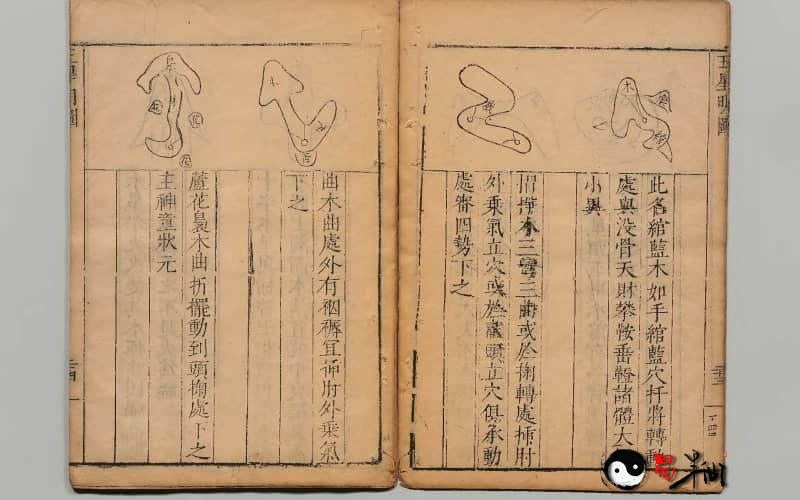 此名綰藍木如手綰藍穴扦將轉動
處與没骨天財攀鞍垂鐙諸體大
小異
木三彎三曲或於掬轉處揷肘
外乘氣立穴或於鰲頭立穴俱承動
處審四勢下之
曲木曲處外有裀褥宜揷肘外乘氣
下之
蘆花裊木曲折擺動到頭掬處下之
主神童狀元
五星明圖
木